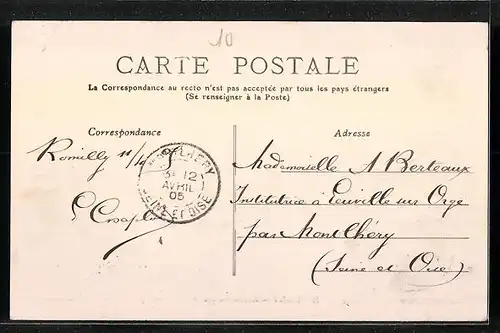 10
CARTE POSTALE
La Correspondance au recto n'est pas acceptée par tous les pays étrangers
(Se renseigner à la Poste)
Correspondance
Adresse
Romilly 11/4 5
MONTLHERY
12
AVRIL
05
SEINE ET OISE
Mademoiselle A Berteaux
Institutrice à Leuville sur Orge
par Montlhéry
(Seine et Oise)